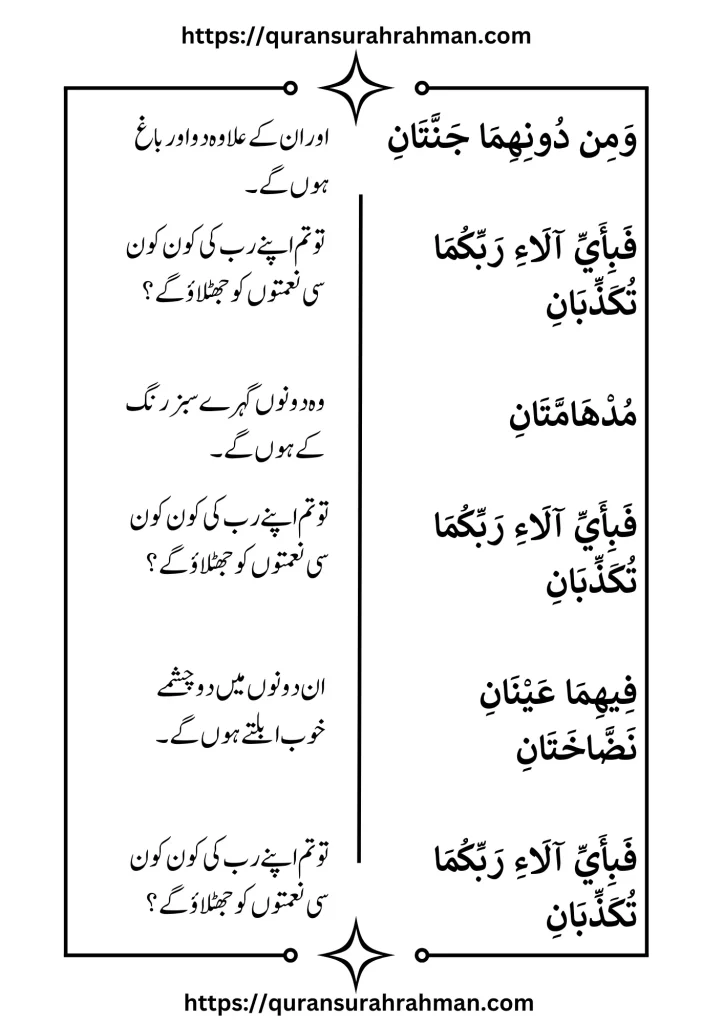 https://quransurahrahman.com
وَمِن دُونِهِمَا جَنَّتَانِ
اور ان کے علاوہ دو اور باغ
ہوں گے۔
فَبِأَيِّ آلَاءِ رَبِّكُمَا
تُكَذِّبَانِ
تو تم اپنے رب کی کون کون
سی نعمتوں کو جھٹلاؤ گے؟
مُدْهَامَّتَانِ
وہ دونوں گہرے سبز رنگ
کے ہوں گے۔
فَبِأَيِّ آلَاءِ رَبِّكُمَا
تُكَذِّبَانِ
تو تم اپنے رب کی کون کون
سی نعمتوں کو جھٹلاؤ گے؟
فِيهِمَا عَيْنَانِ
نَضَّاخَتَانِ
ان دونوں میں دو چشمے
خوب ابلتے ہوں گے۔
فَبِأَيِّ آلَاءِ رَبِّكُمَا
تُكَذِّبَانِ
تو تم اپنے رب کی کون کون
سی نعمتوں کو جھٹلاؤ گے؟
https://quransurahrahman.com